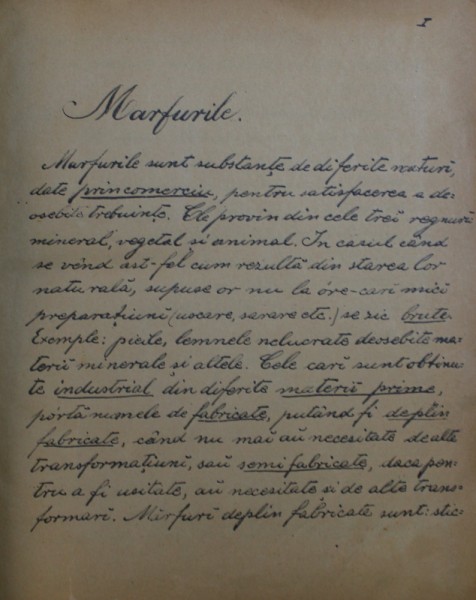 I
Marfurile.
Marfurile sunt substanțe de diferite naturi,
date prin comerciu, pentru satisfacerea a de-
osebite trebuințe. Ele provin din cele trei regnuri
mineral, vegetal și animal. In casul când
se vênd ast-fel cum rezultă din starea lor
naturală, supuse or nu la óre-cari mici
preparațiuni (uscare, sarare etc.) se zic brute.
Exemple: piele, lemnele nelucrate deosebite ma-
terii minerale și altele. Cele cari sunt obtinu-
te industrial din diferite materii prime,
pórtă numele de fabricate, putând fi deplin
fabricate, când nu mai aŭ necesitate de alte
transformațiuni, saŭ semifabricate, daca pen-
tru a fi usitate, aŭ necesitate și de alte trans-
formari. Mărfuri deplin fabricate sunt: stic-